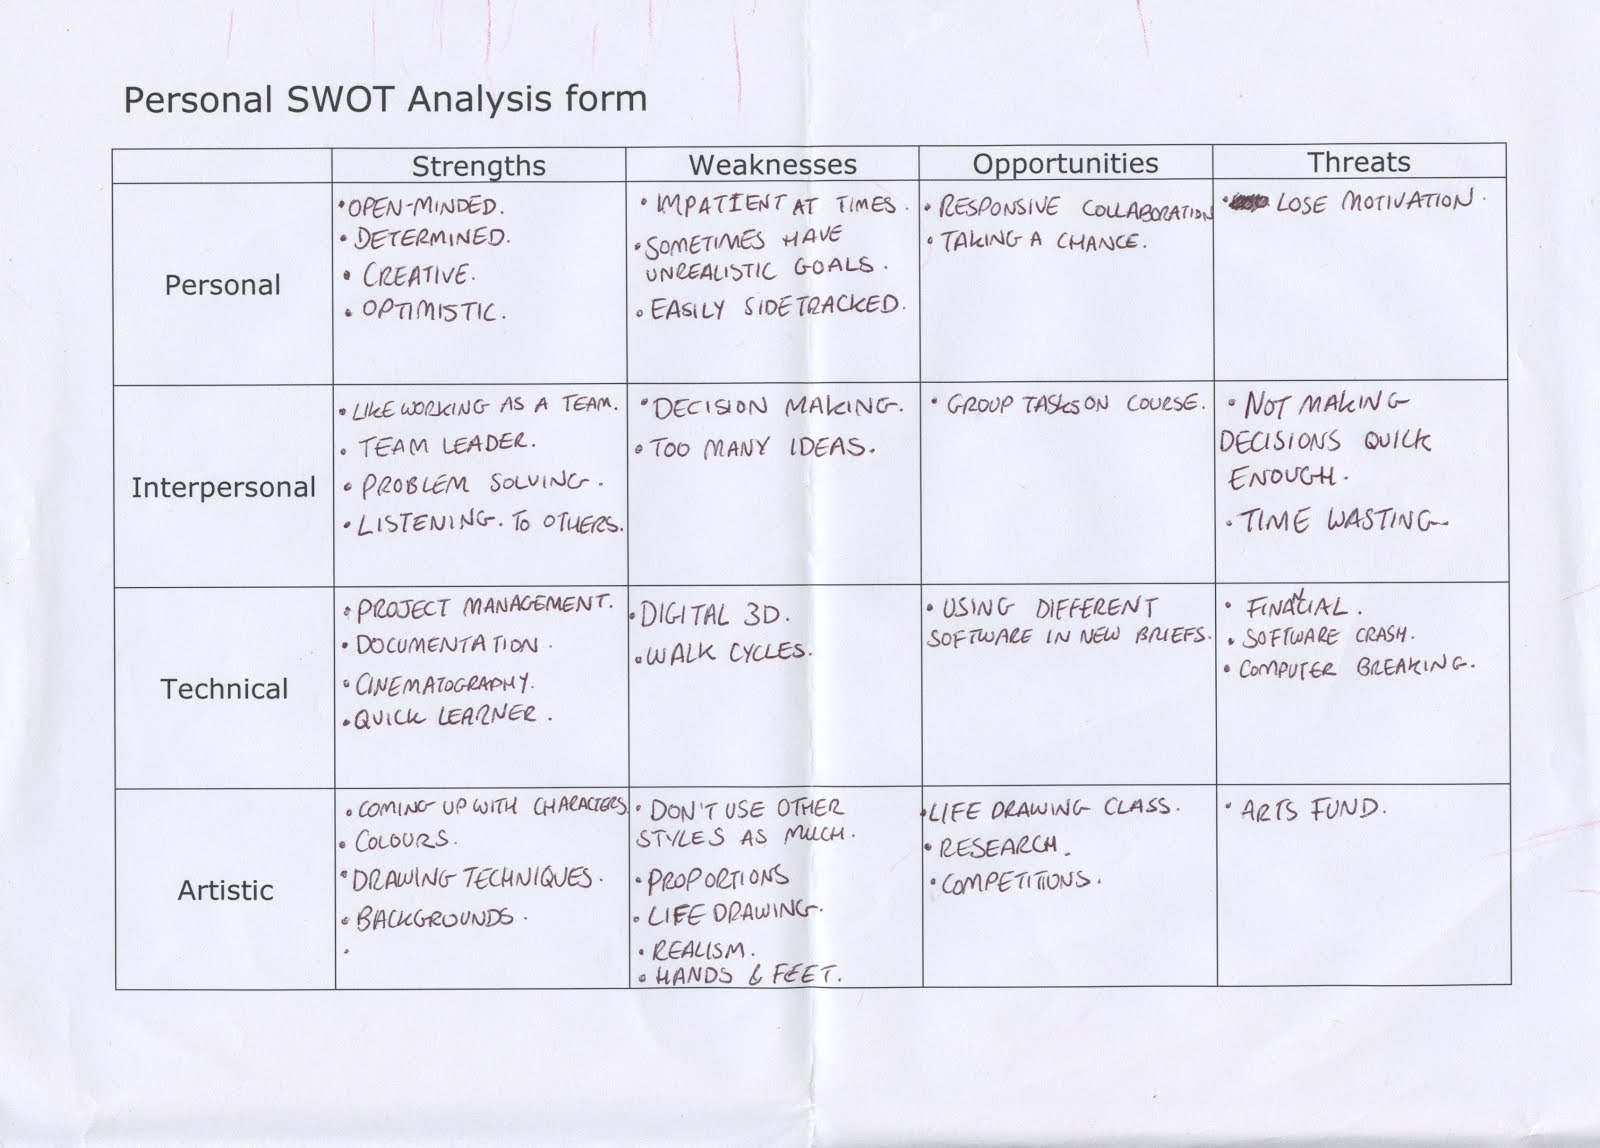 Personal SWOT Analysis form
Strengths Weaknesses Opportunities Threats
Personal
• OPEN-MINDED.
• DETERMINED.
• CREATIVE.
• OPTIMISTIC.
• IMPATIENT AT TIMES.
• SOMETIMES HAVE
UNREALISTIC GOALS.
• EASILY SIDETRACKED.
• RESPONSIVE COLLABORATION
• TAKING A CHANCE.
• LOSE MOTIVATION.
Interpersonal
• LIKE WORKING AS A TEAM.
• TEAM LEADER.
• PROBLEM SOLVING.
• LISTENING. TO OTHERS.
• DECISION MAKING.
• TOO MANY IDEAS.
• GROUP TASKS ON COURSE.
• NOT MAKING
DECISIONS QUICK
ENOUGH.
• TIME WASTING.
Technical
• PROJECT MANAGEMENT.
• DOCUMENTATION.
• CINEMATOGRAPHY.
• QUICK LEARNER.
• DIGITAL 3D.
• WALK CYCLES.
• USING DIFFERENT
SOFTWARE IN NEW BRIEFS.
• FINANCIAL.
• SOFTWARE CRASH.
• COMPUTER BREAKING.
Artistic
• COMING UP WITH CHARACTERS
• COLOURS.
• DRAWING TECHNIQUES.
• BACKGROUNDS.
•
• DON'T USE OTHER
STYLES AS MUCH.
• PROPORTIONS
• LIFE DRAWING.
• REALISM.
• HANDS & FEET.
• LIFE DRAWING CLASS.
• RESEARCH.
• COMPETITIONS.
• ARTS FUND.